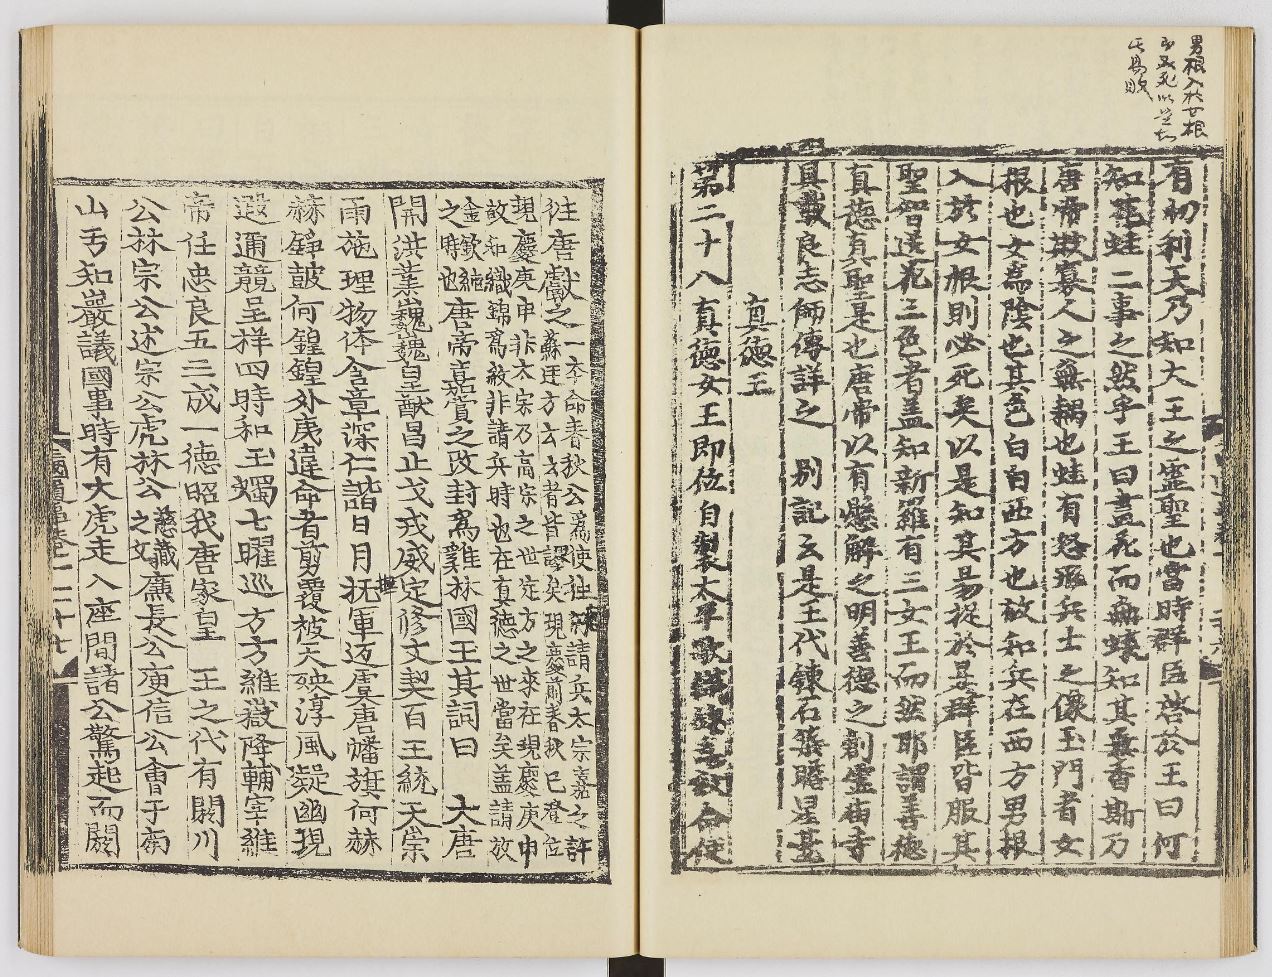 男根入於女根
有忉利天乃知大王之霊聖也當時群臣啓於王曰何
知花蛙二事之然乎王曰畫花而無蝶知其無香斯乃
唐帝欺寡人之無耦也蛙有怒形兵士之像玉門者女
根也女爲陰也其色白白西方也故知兵在西方男根
入於女根則必死矣以是知其易捉於是群臣皆服其
聖智送花三色者盖知新羅有三女王而然耶謂善徳
真徳真聖是也唐帝以有懸解之明善徳之創霊庙寺
具載良志師傳詳之 別記云是王代錬石築瞻星臺
真徳王
第二十八真徳女王即位自製太平歌織錦為紋命使
往唐獻之一本命春秋公爲使往請兵太宗嘉之許
蘇迋方云云者皆謬矣現慶前春秋已登位
現慶庚申非太宗乃高宗之世定方之來在現慶庚申
故知織錦爲紋非請兵時也在真徳之世當矣盖請放
金欽純之時也唐帝嘉賞之改封爲雞林國王其詞曰 大唐
開洪業巍巍皇猷昌止戈戎威定修文契百王統天崇
雨施理物体含章深仁諧日月抚軍迈虞唐幡旗何赫
赫錚皷何鍠鍠外夷違命者剪覆被天殃淳風凝幽現
遐邇競呈祥四時和玉燭七曜巡万方維嶽降輔宰維
帝任忠良五三成一徳昭我唐家皇 王之代有閼川
公林宗公述宗公虎林公慈藏之父廉長公庾信公會于南
山亐知巖議國事時有大虎走入座間諸公驚起而閼